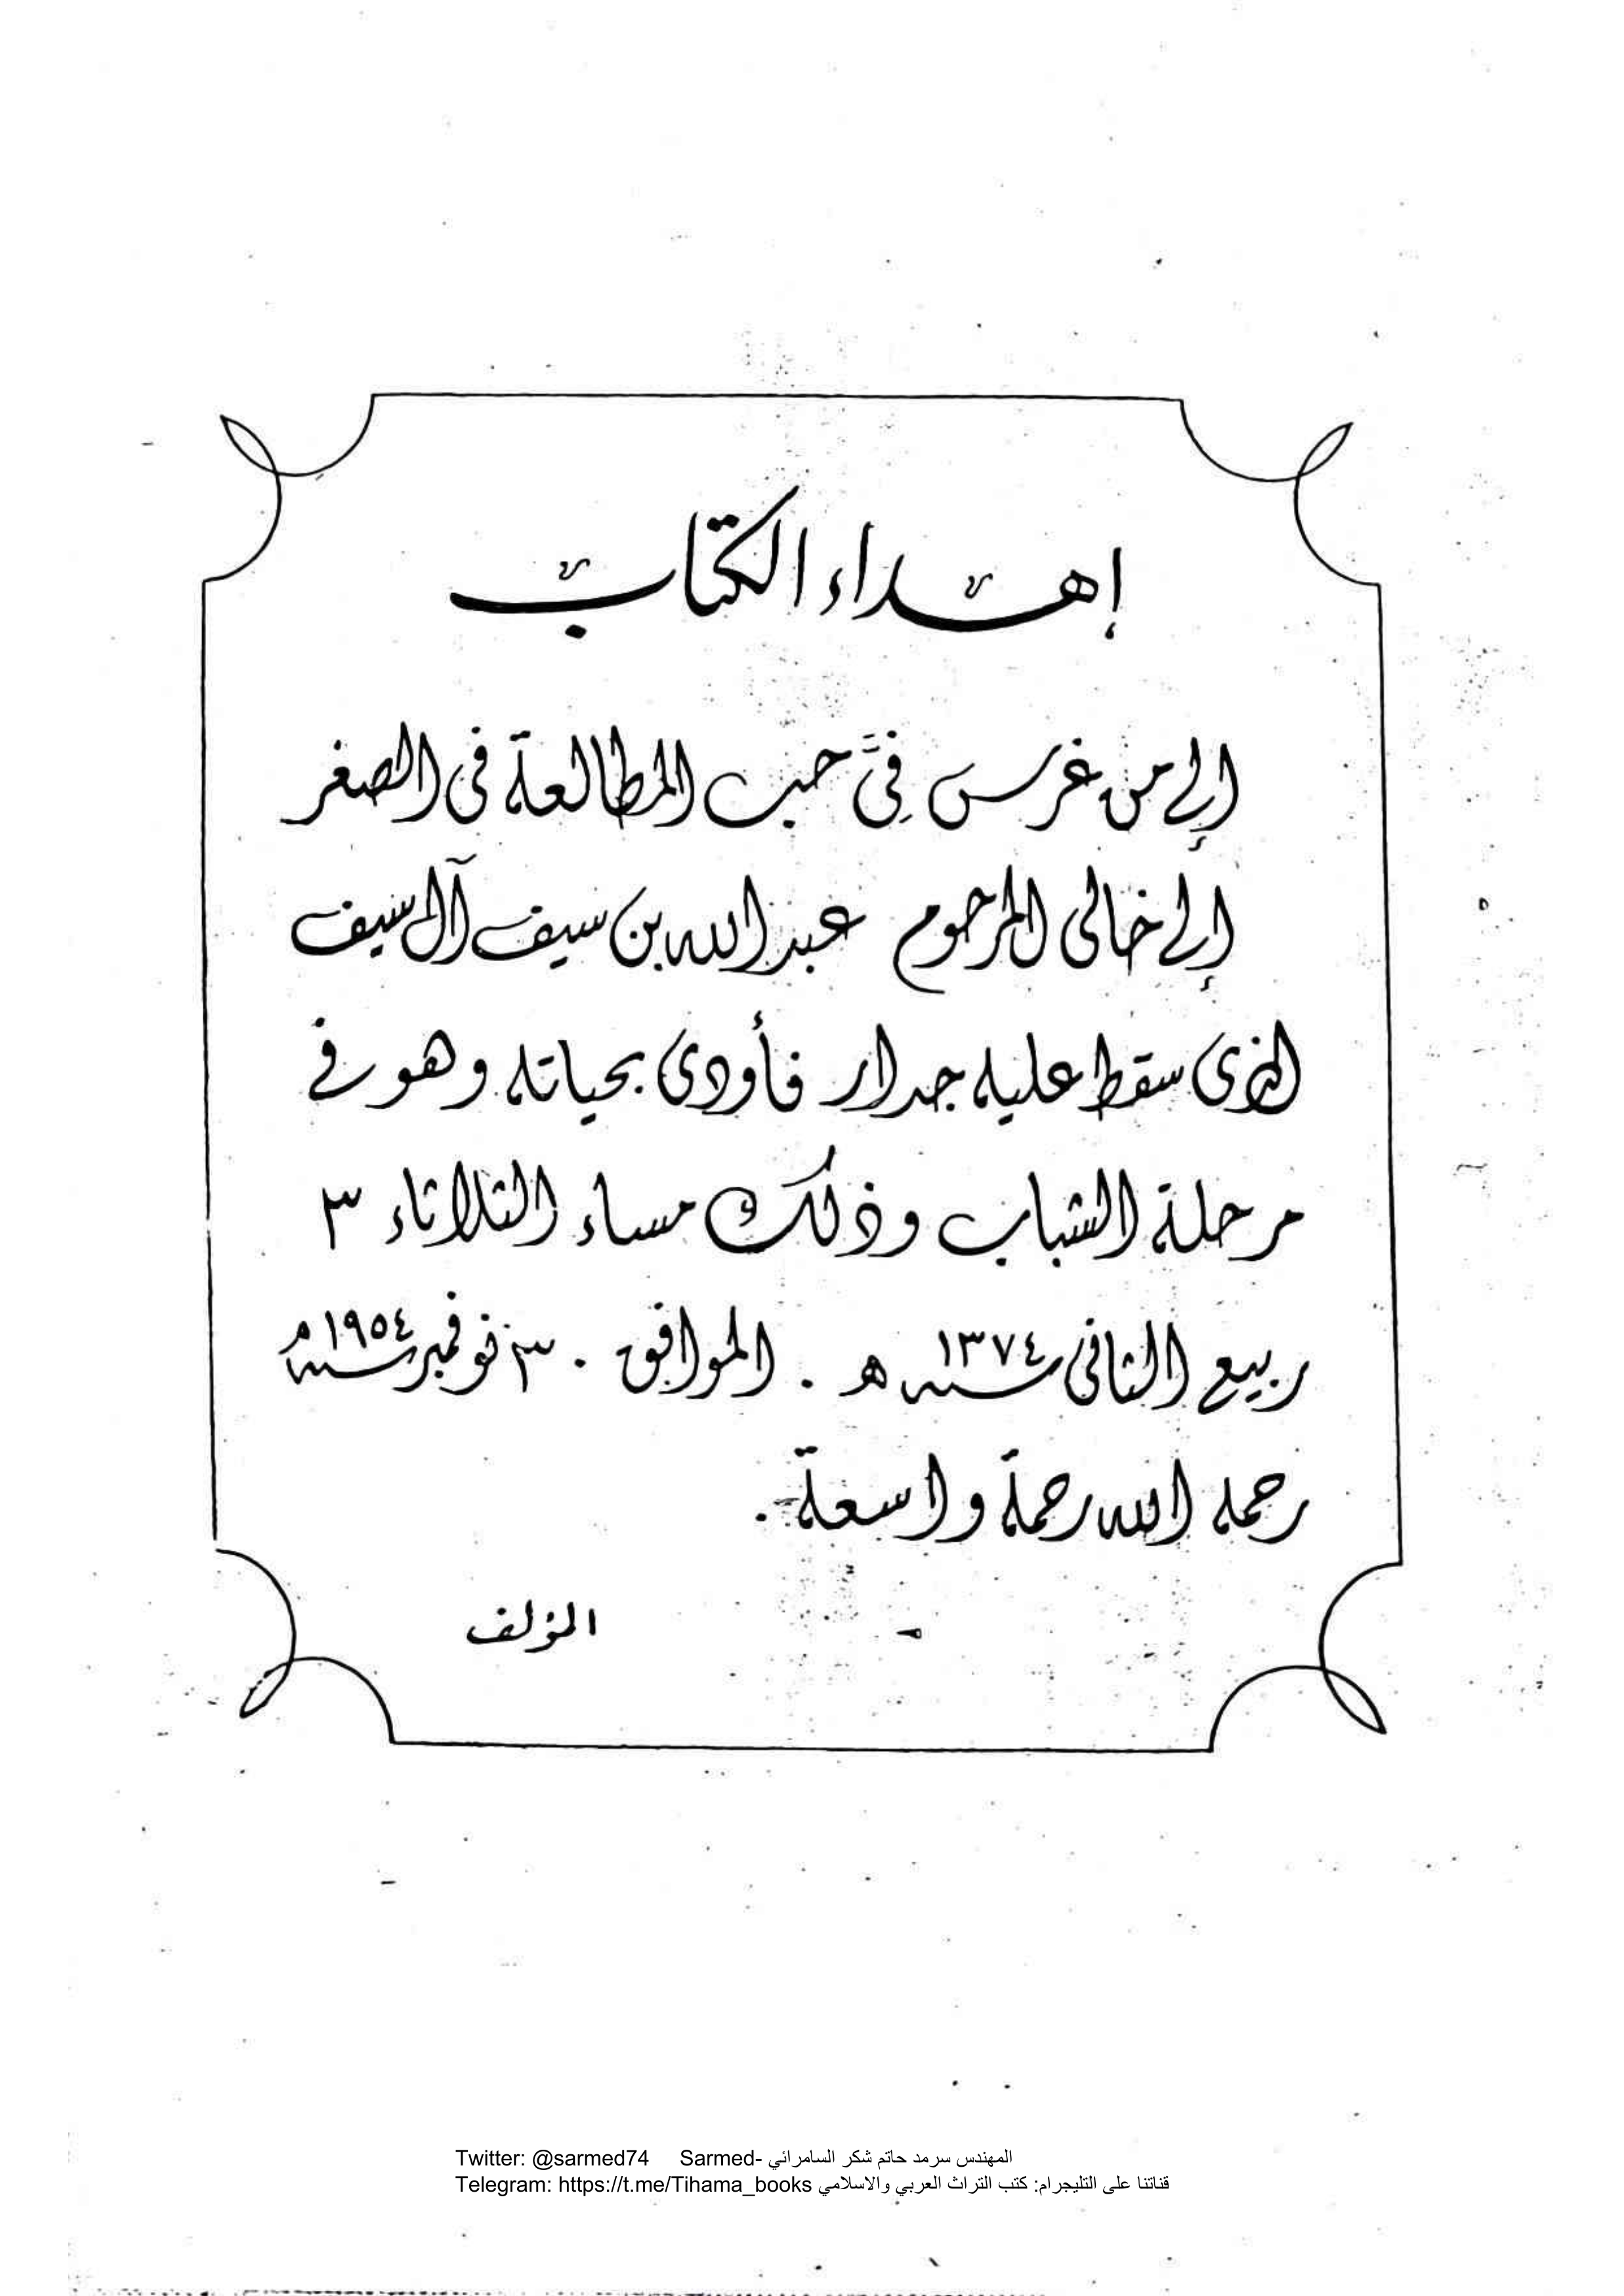 إهداء الكتاب
إلى من غرس فيَّ حب المطالعة فى الصغر
إلى خالى المرحوم عبد الله بن سيف آل سيف
الذى سقط عليه جدار فأودى بحياته وهو في
مرحلة الشباب وذلك مساء الثلاثاء ٣
ربيع الثانى سنة ١٣٧٤ هـ . الموافق . ٣ نوفمبر سنة ١٩٥٤ م
رحمه الله رحمة واسعة .
المؤلف
Twitter: @sarmed74 Sarmed- المهندس سرمد حاتم شكر السامرائي
Telegram: https://t.me/Tihama_books قناتنا على التليجرام: كتب التراث العربي والاسلامي